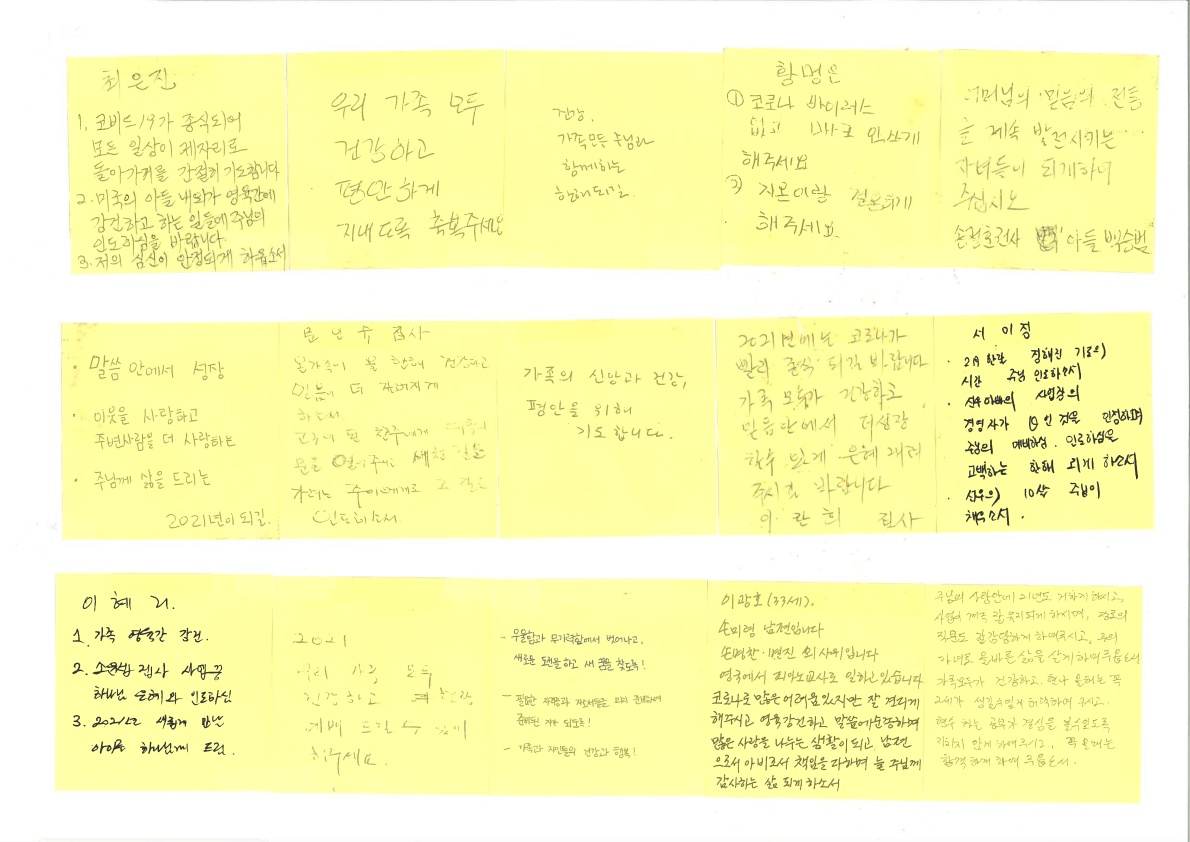 최은진
1. 코비드19가 종식되어
모든 일상이 제자리로
돌아가기를 간절히 기도합니다
2. 미국의 아들 내외가 영육간에
강건하고 하는 일들에 주님의
인도하심을 바랍니다
3. 저의 심신이 안정되게 하옵소서
우리 가족 모두
건강하고
평안하게
지내도록 축복주세요
건강.
가족모든 주님과
함께하는
한해되길.
황명은
① 코로나 바이러스
없고 마스크 안쓰게
해주세요
해주세요
어머님의 믿음의 전통
을 계속 발전시키는
자녀들이 되게하여
주십시오
아들 백순범
· 말씀 안에서 성장
· 이웃을 사랑하고
주변사람을 더 사랑하는
· 주님께 삶을 드리는
2021년이 되길.
집사
온가족이 올 한해 건강하고
믿음이 더
하소서
인도하소서
가족의 신앙과 건강,
평안을 위해
기도합니다.
2021년에는 코로나가
빨리 종식 되길 바랍니다
가족 모두가 건강하고
믿음안에서 더성장
할수 있게 은혜 내려
주시길 바랍니다
이 란 희 집사
서 이 정
시간 주님 인도하소서
경영자가 인 것을 인정하며
주님의 예비하심. 인도하심을
고백하는 한해 되게 하소서
주님이
채우소서.
이 혜 리.
1. 가족 영육간 강건.
2. 집사 사업장
하나님 은혜와 인도하심
3. 2021년 새롭게 만난
하나님께 드림.
2021
우리 가정 모두
건강하고
예배 드릴 수 있게
해주세요
- 우울함과 무기력함에서 벗어나고,
새로운 도전을 하고 새 꿈을 찾도록!
- 가족과 지인들의 건강과 행복!
이광호(33세).
손미령 남편입니다
영국에서 피아노교사로 일하고 있습니다
코로나로 많은 어려움 있지만 잘 견디게
해주시고 영육강건하고 말씀에순종하며
많은 사랑을 나누는 생활이되고 남편
으로서 아비로서 책임을 다하며 늘 주님께
감사하는 삶 되게 하소서
주님의 사랑안에 21년도 거하게 하시고,
사업이 계속 잘 유지되게 하시며,
직분도 잘감당하게 하여주시고,
자녀로 올바른 삶을 살게 하여주옵소서
가족모두가 건강하고,
하여 주시고,
합격하게 하여 주옵소서.